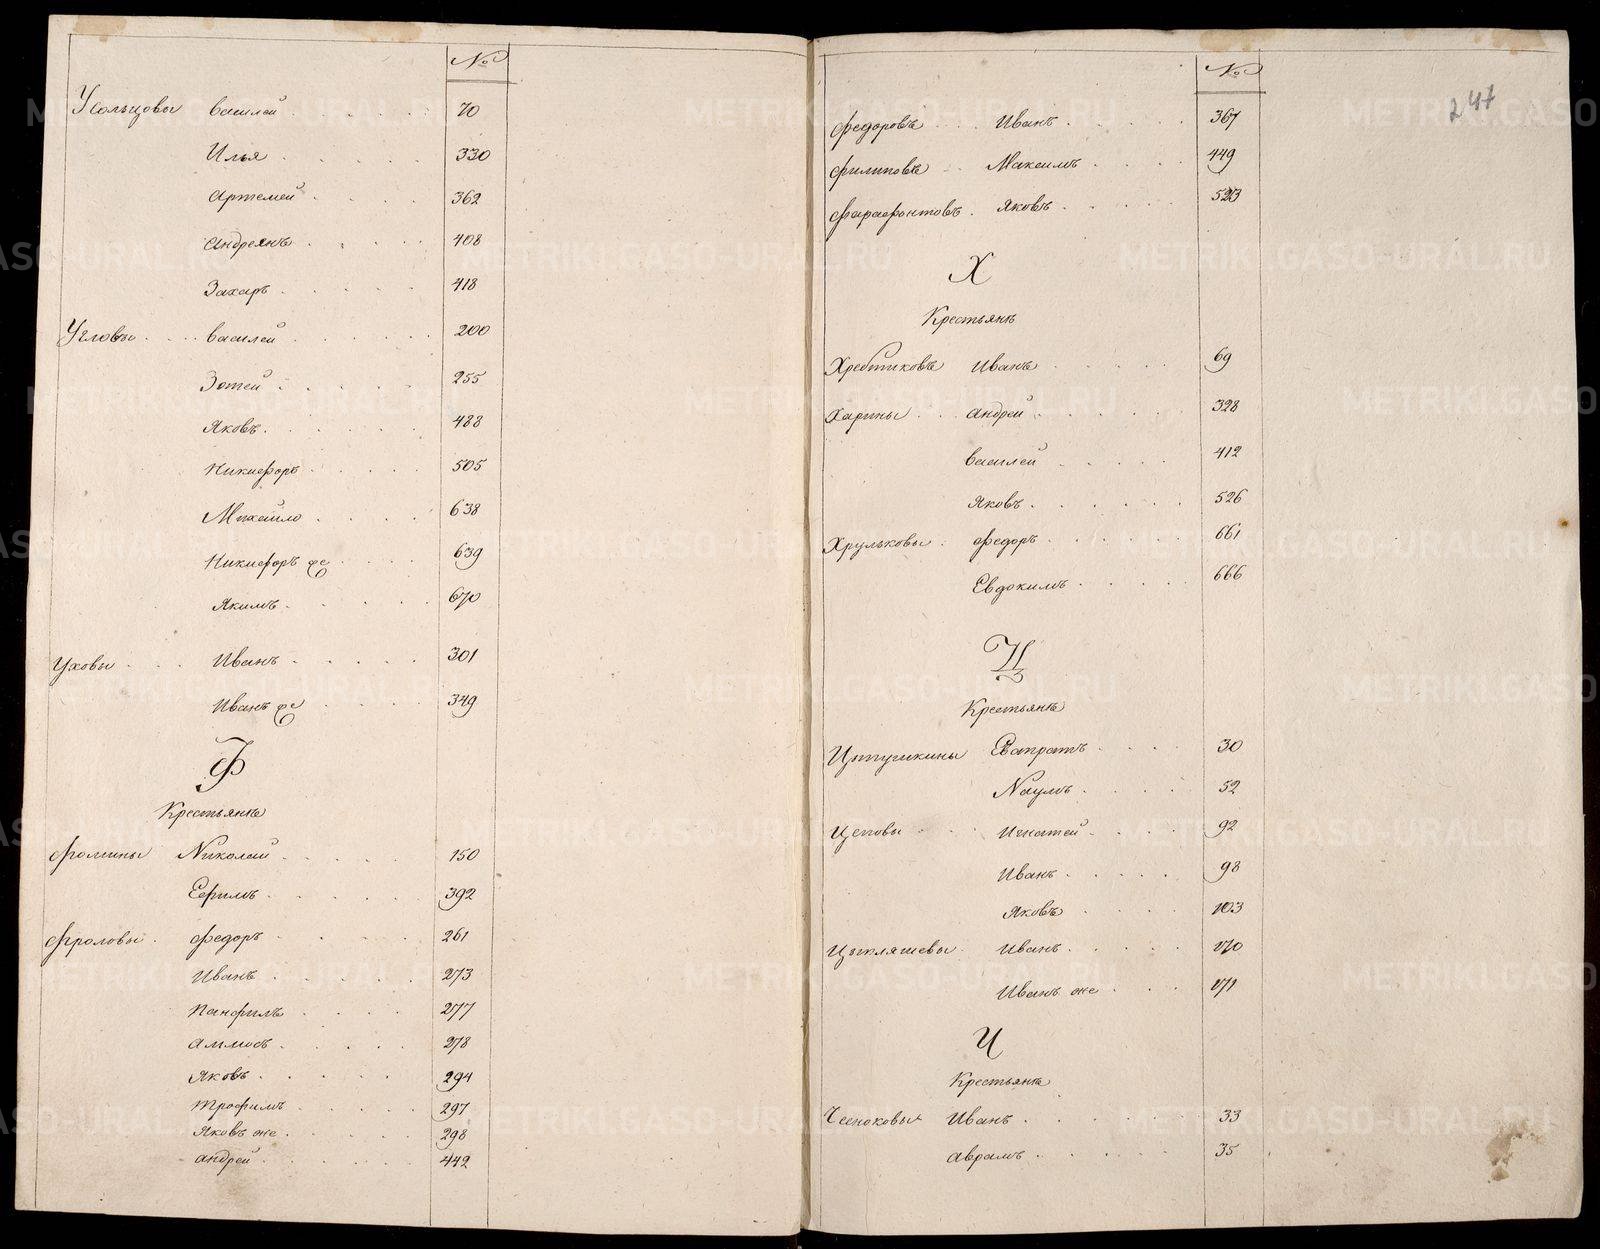 №
Усольцовы Василей 70
Илья 330
Артемей 362
Андреянъ 408
Захаръ 418
Угловы Василей 200
Зотей 255
Яковъ 488
Никифоръ 505
Михайло 638
Никифоръ же 639
Якимъ 670
Уховы Иванъ 301
Иванъ же 349
Ф
Крестьянъ
Фомины Николай 150
Ефимъ 392
Фроловы Федоръ 261
Иванъ 273
Панфилъ 277
Аммосъ 278
Яковъ 294
Трофимъ 297
Яковъ же 298
Андрей 442
№
247
Федоровъ Иванъ 367
Филиповъ Максимъ 449
Фарафонтовъ Яковъ 523
Х
Крестьянъ
Хребтиковъ Иванъ 69
Харины Андрей 328
Василей 412
Яковъ 526
Хрульковы Федоръ 661
Евдокимъ 666
Ц
Крестьянъ
Евстратъ 30
Наумъ 52
Цеповы Игнатей 92
Иванъ 98
Яковъ 103
Цыкляшевы Иванъ 170
Иванъ же 171
Ч
Крестьянъ
Чесноковы Иванъ 33
Аврамъ 35
METRIKI.GASO-URAL.RU